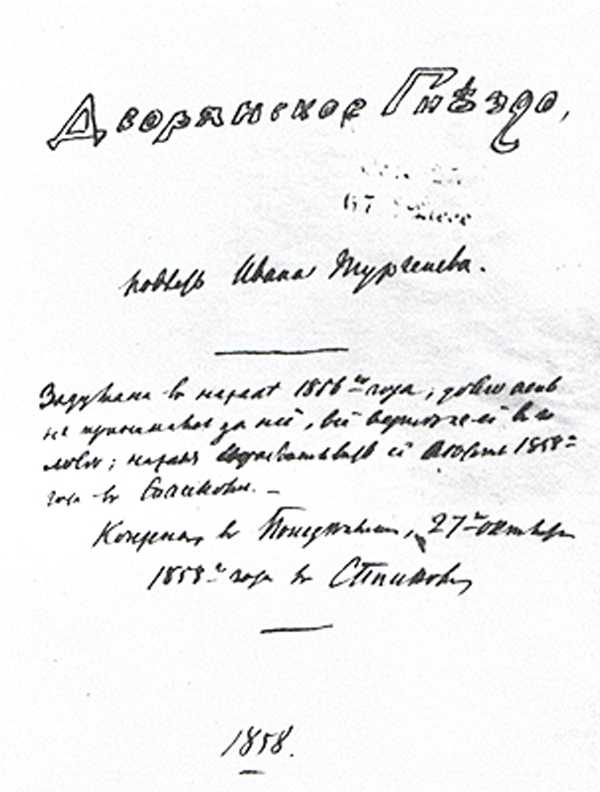 Дворянское Гнѣздо,
повѣсть Ивана Тургенева.
Задумана въ началѣ 1856го года; долго
не принимался за неё, всё вертѣлъ её въ го
ловѣ; началъ её 1858го
года въ Спасскомъ. —
Кончена въ Понедѣльникъ, 27го октября
1858го года въ
1858.